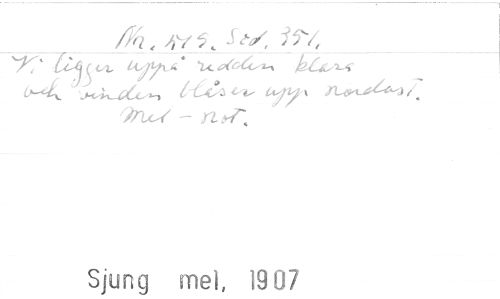 Nr. 519. Sid. 351.
Vi ligger uppå redden klara
och vinden blåser upp nordost.
Mel - not.
Sjung mel, 1907